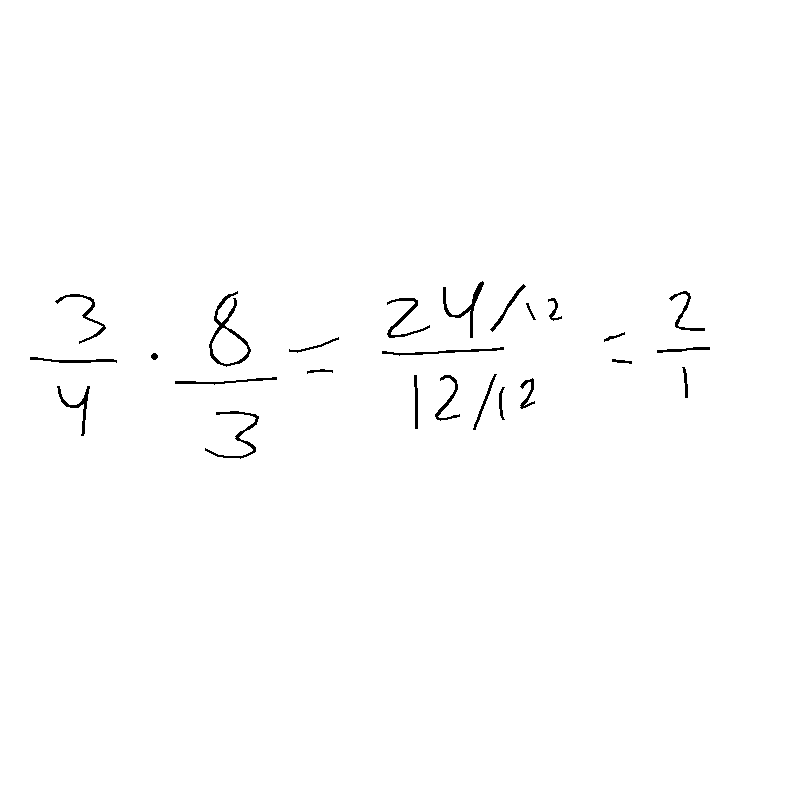 3/4 · 8/3 = 24/12 / 12/12 = 2/1